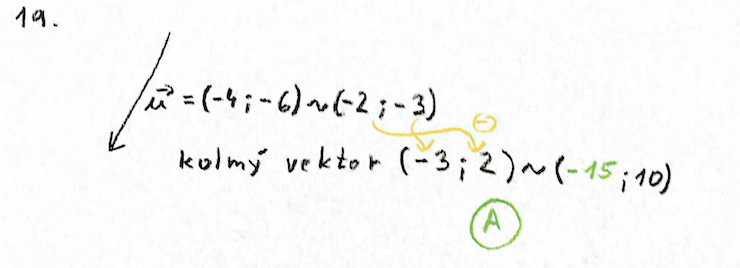 19.
u⃗ = (-4; -6) ~ (-2; -3)
⊖
kolmý vektor (-3; 2) ~ (-15; 10)
A